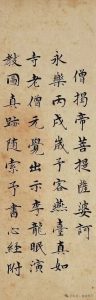 僧揭帝菩提薩婆訶
永樂丙戌歲予客燕臺真如
寺老僧元覺出示李龍眠演
教圖真跡隨索予書心經附